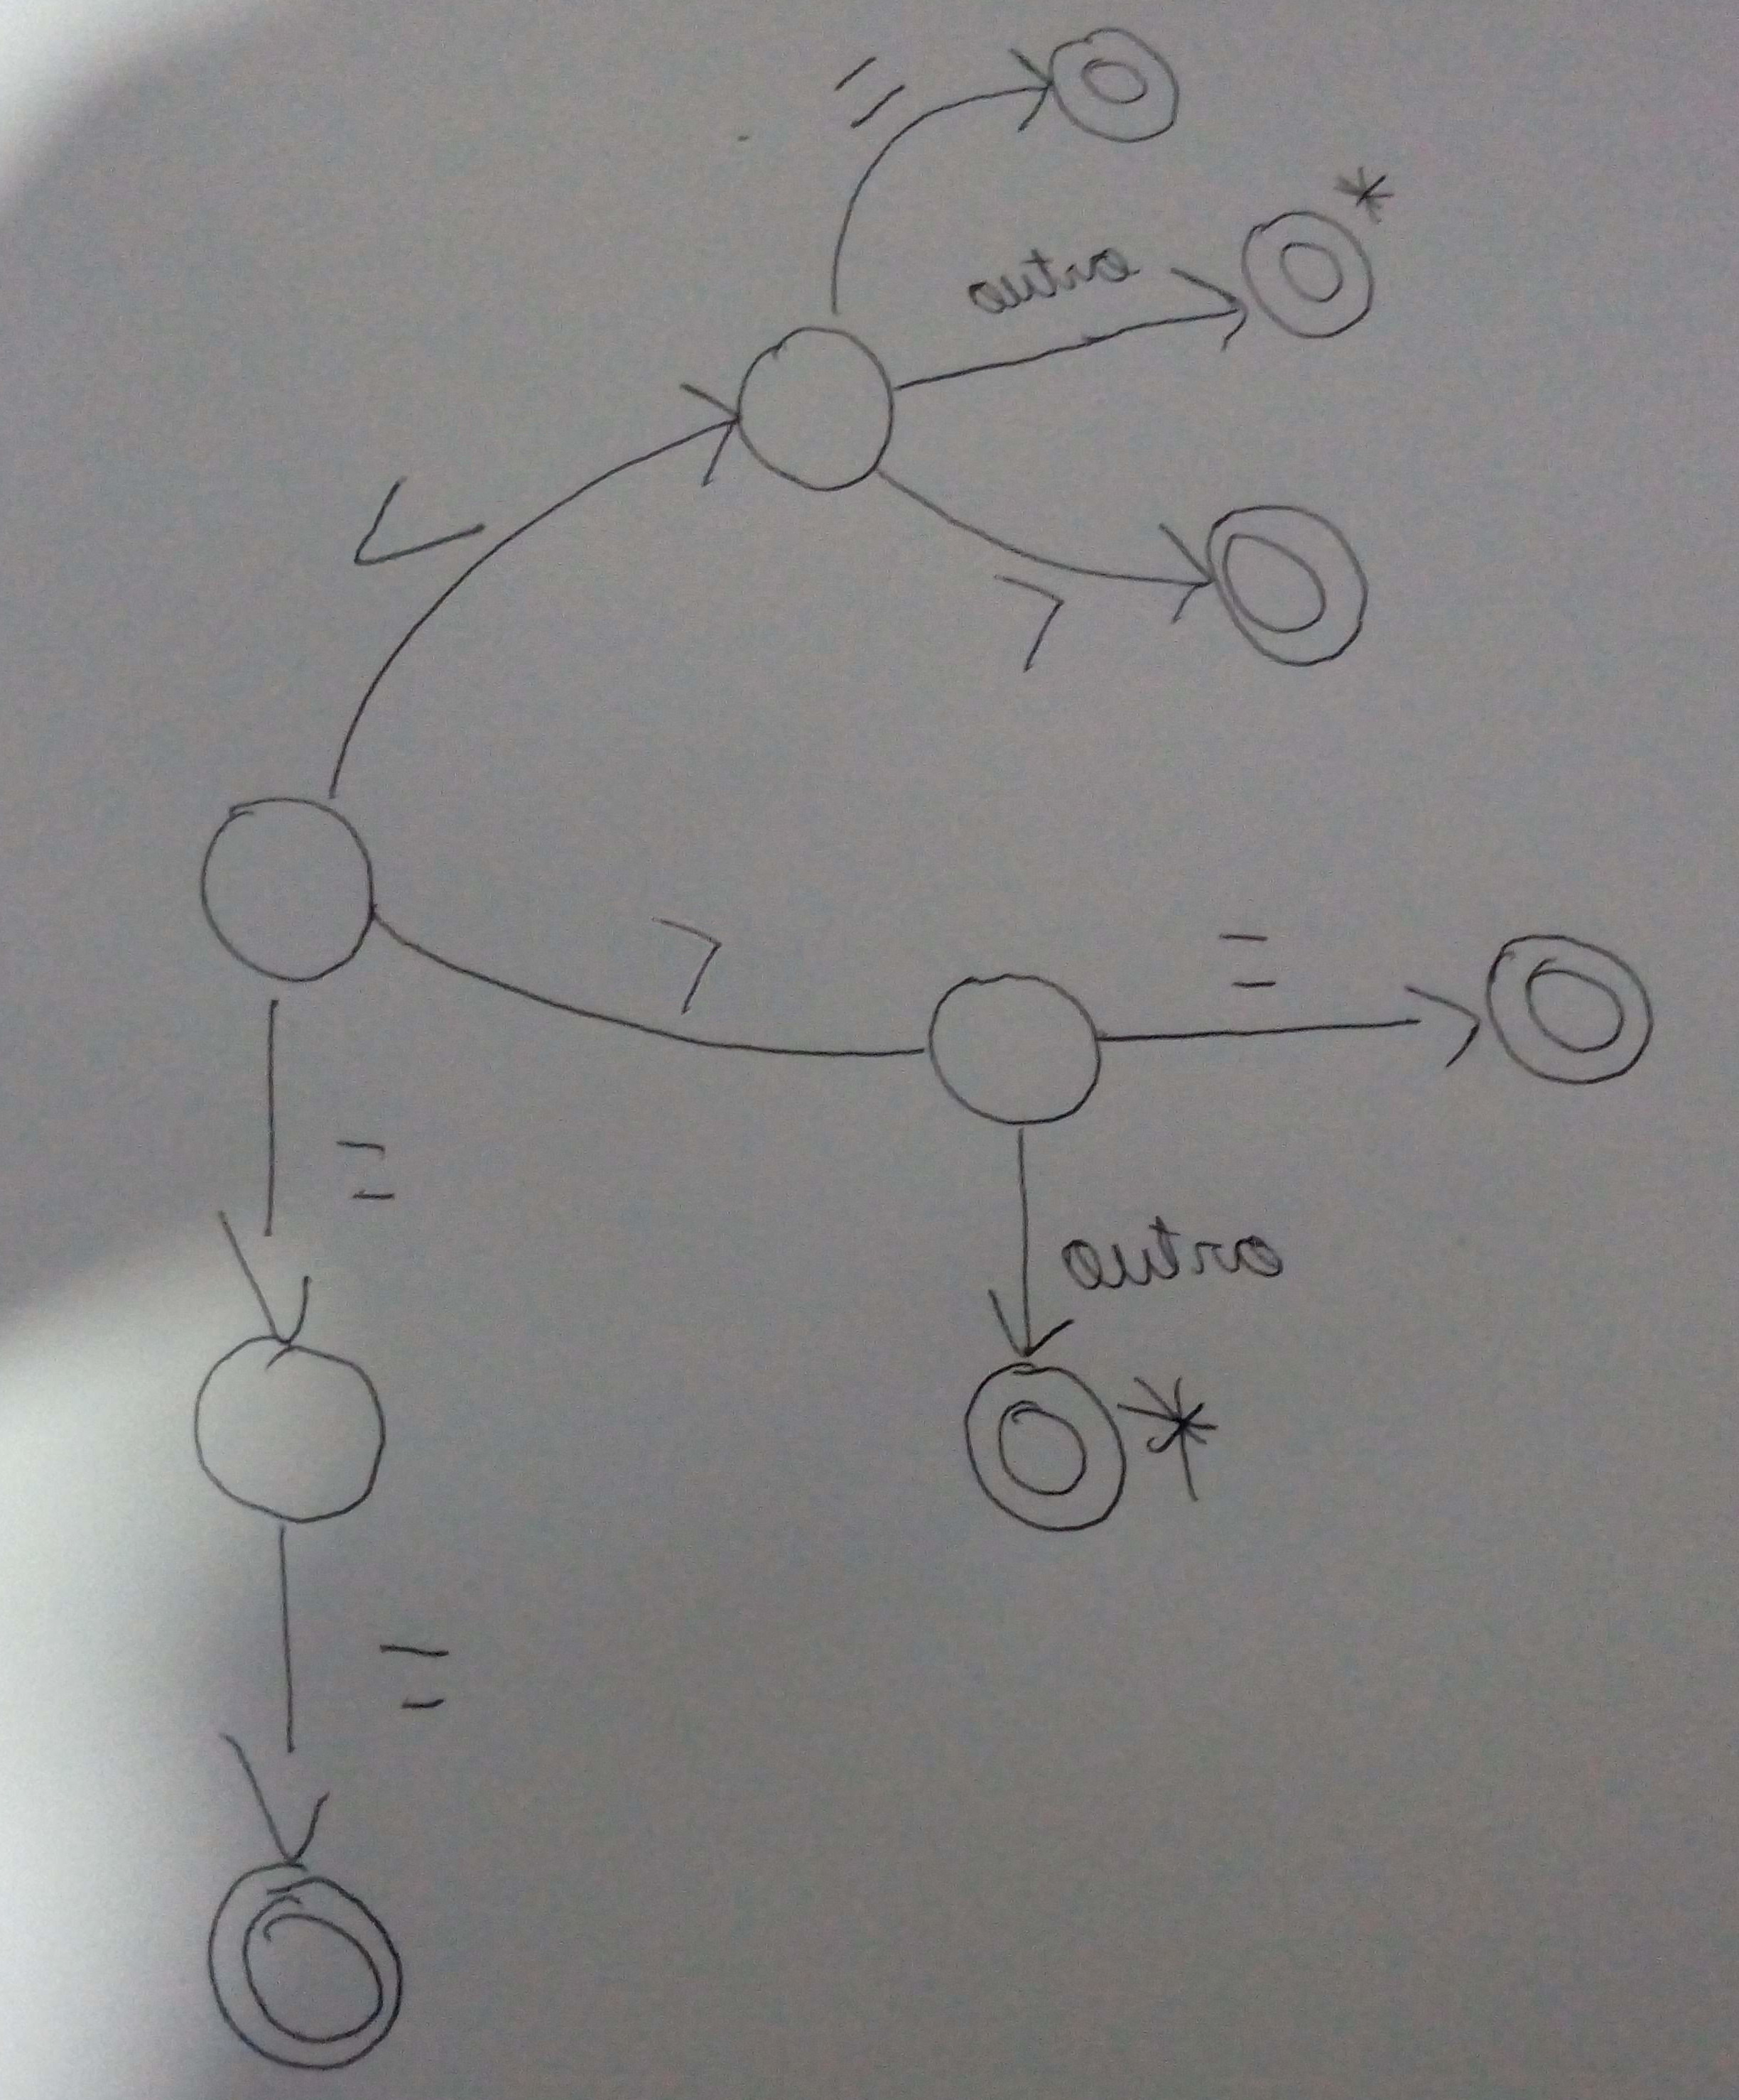 =
*
outro
<
>
>
=
=
outro
*
=